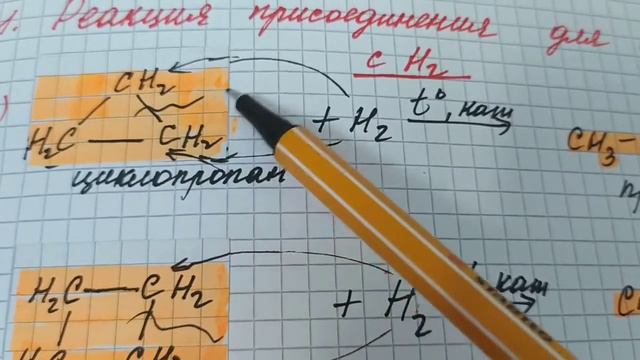 1. Реакция присоединения для
с H₂
CH₂
H₂C — CH₂ + H₂ t°, кат
CH₃—
циклопропан
H₂C — CH₂
+ H₂ кат